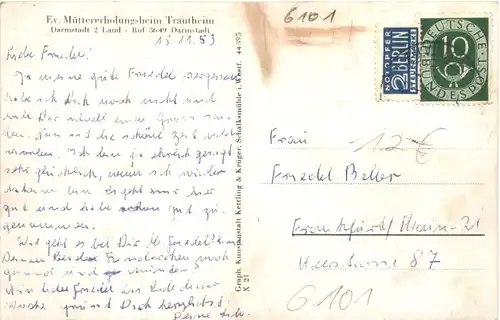 Ev. Müttererholungsheim Trautheim
Darmstadt 2 Land - Ruf 3649 Darmstadt
15.11.53
Liebe Friedel!
Ja meine gute Friedel vergessen
habe ich Dich noch nicht und
will Dir schnell einen Gruß
Nun ist die schöne Zeit
Ich bin ja ehrlich gesagt
sehr glücklich, wenn ich wieder
daheim bin. Es geht mir hier
gut und habe schon gut zu-
genommen.
Was geht es bei Dir lb. Friedel? Sin
Deinen noch
gesund und munter?
Nun liebe Friedel bis Ende dieser
Woche grüsst Dich herzlichst
Deine
Graph. Kunstanstalt Kettling & Krüger, Schalksmühle i. Westf. 44 395
X 21
6101
NOTOPFER
2 BERLIN
STEUERMARKE
DEUTSCHE
BUNDESPOST
10
12 €
Frau
Friedel Beller
Frankfurt/Main-21
87
6101